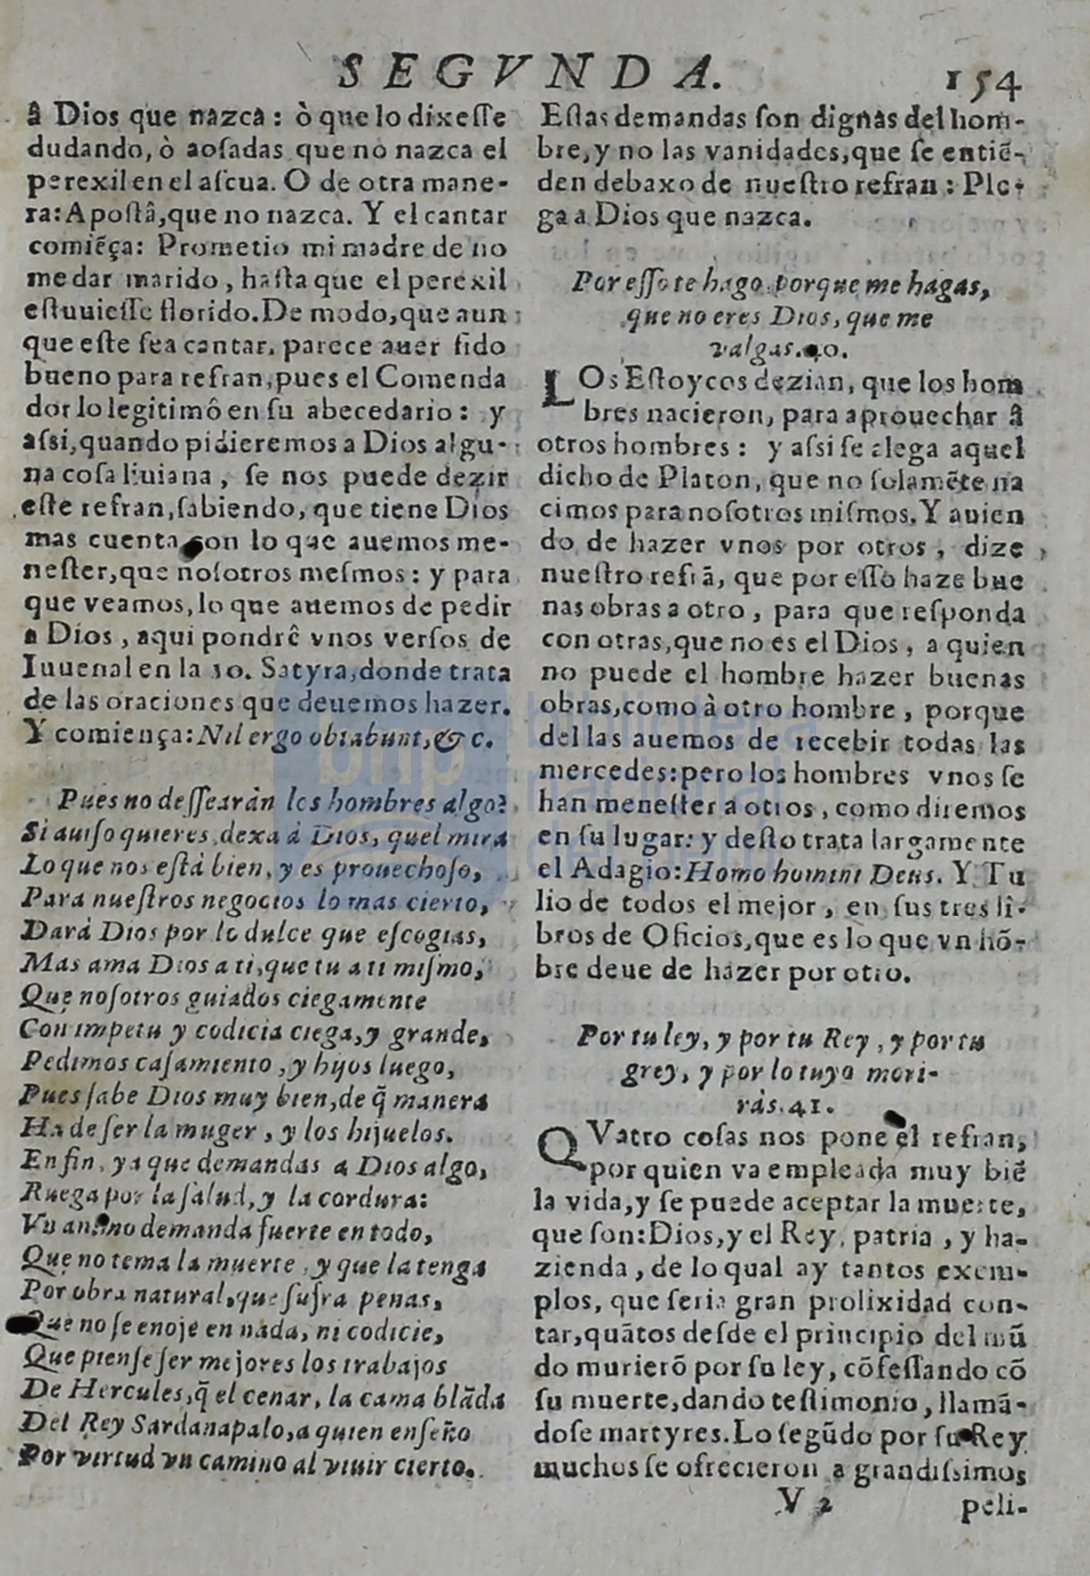 SEGVNDA. 154
â Dios que nazca: ò que lo dixeſſe
dudando, ò aoſadas que no nazca el
perexil en el aſcua. O de otra mane-
ra: Apoſtâ, que no nazca. Y el cantar
comiẽça: Prometio mi madre de no
me dar marido, haſta que el perexil
eſtuuieſſe florido. De modo, que aun
que eſte ſea cantar, parece auer ſido
bueno para refran, pues el Comenda
dor lo legitimô en ſu abecedario: y
aſsi, quando pidieremos a Dios algu-
na coſa liuiana, ſe nos puede dezir
eſte refran, ſabiendo, que tiene Dios
mas cuenta con lo que auemos me-
neſter, que noſotros meſmos: y para
que veamos, lo que auemos de pedir
a Dios, aqui pondrê vnos verſos de
Iuuenal en la 10. Satyra, donde trata
de las oraciones que deuemos hazer.
Y comiença: Nil ergo obtabunt, &c.
Pues no deſſearàn los hombres algo?
Si auiſo quieres, dexa à Dios, quel mira
Lo que nos eſtà bien, y es prouechoſo,
Para nueſtros negocios lo mas cierto,
Darà Dios por lo dulce que eſcogias,
Mas ama Dios a ti, que tu a ti miſmo,
Que noſotros guiados ciegamente
Con impetu y codicia ciega, y grande,
Pedimos caſamiento, y hijos luego,
Pues ſabe Dios muy bien, de q̃ manera
Ha de ſer la muger, y los hijuelos.
En fin, ya que demandas a Dios algo,
Ruega por la ſalud, y la cordura:
Vn animo demanda fuerte en todo,
Que no tema la muerte, y que la tenga
Por obra natural, que ſufra penas,
Que no ſe enoje en nada, ni codicie,
Que pienſe ſer mejores los trabajos
De Hercules, q̃ el cenar, la cama blãda
Del Rey Sardanapalo, a quien enſeño
Por virtud vn camino al viuir cierto.
Eſtas demandas ſon dignas del hom-
bre, y no las vanidades, que ſe entiẽ-
den debaxo de nueſtro refran: Ple-
ga a Dios que nazca.
Por eſſo te hago porque me hagas,
que no eres Dios, que me
valgas. 40.
LOs Eſtoycos dezian, que los hom
bres nacieron, para aprouechar â
otros hombres: y aſsi ſe alega aquel
dicho de Platon, que no ſolamẽte na
cimos para noſotros miſmos. Y auien
do de hazer vnos por otros, dize
nueſtro refrã, que por eſſo haze bue
nas obras a otro, para que reſponda
con otras, que no es el Dios, a quien
no puede el hombre hazer buenas
obras, como à otro hombre, porque
del las auemos de recebir todas las
mercedes: pero los hombres vnos ſe
han meneſter a otros, como diremos
en ſu lugar: y deſto trata largamente
el Adagio: Homo homini Deus. Y Tu
lio de todos el mejor, en ſus tres li-
bros de Oficios, que es lo que vn hõ-
bre deue de hazer por otro.
Por tu ley, y por tu Rey, y por tu
grey, y por lo tuyo mori-
ràs. 41.
QVatro coſas nos pone el refran,
por quien va empleada muy biẽ
la vida, y ſe puede aceptar la muerte,
que ſon: Dios, y el Rey, patria, y ha-
zienda, de lo qual ay tantos exem-
plos, que ſeria gran prolixidad con-
tar, quãtos deſde el principio del mũ
do murierõ por ſu ley, cõfeſſando cõ
ſu muerte, dando teſtimonio, llamã-
doſe martyres. Lo ſegũdo por ſu Rey
muchos ſe ofrecieron a grandiſsimos
V 2 peli-